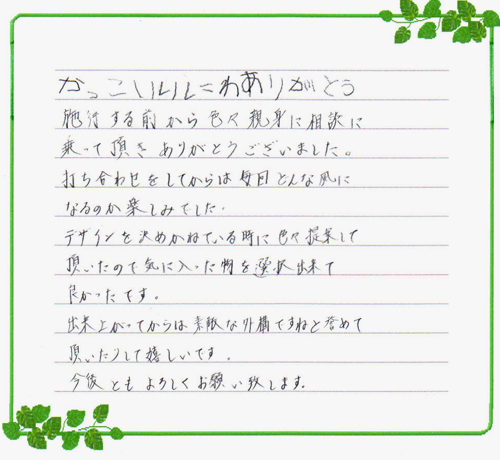 かっこいいにわありがとう
施行する前から色々親身に相談に
乗って頂きありがとうございました。
打ち合わせをしてからは毎日どんな風に
なるのか楽しみでした。
デザインを決めかねている時に色々提案して
頂いたので気に入った物を選択出来て
良かったです。
出来上がってからは素敵な外構ですねと誉めて
頂いたりして嬉しいです。
今後ともよろしくお願い致します。